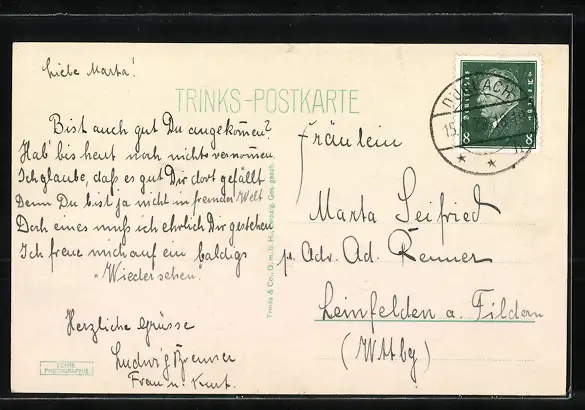 Liebe Marta!
TRINKS-POSTKARTE
Bist auch gut Du angekommen?
Hab' bis heut noch nichts vernommen
Ich glaube, daß es gut Dir dort gefällt
Denn Du bist ja nicht in fremder Welt
Doch eines muß ich ehrlich Dir gestehen
Ich freue mich auf ein baldigs
"Wiedersehen".
Herzliche Grüsse
Ludwig Brenner
Frau u. Kurt.
ECHTE
PHOTOGRAPHIE
Trinks & Co., G. m. b. H., Leipzig. Ges. gesch.
DURLACH
15.
8
8
Fräulein
Marta Seifried
Adr. Ad. Renner
Leinfelden a. Fildern
(Wttbg)